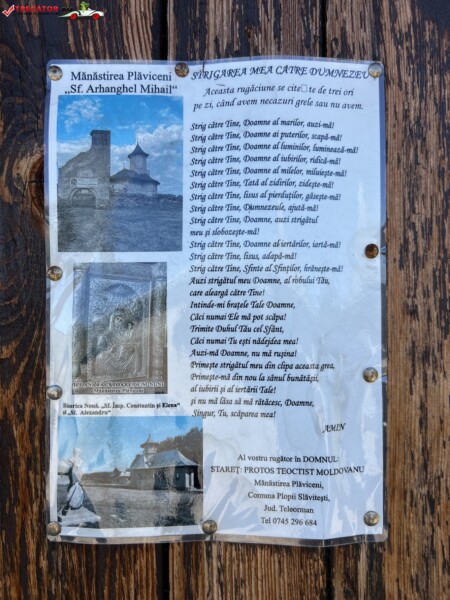 TREGATOR
Mănăstirea Plăviceni
„Sf. Arhanghel Mihail“
Biserica Nouă, „Sf. Împ. Constantin și Elena“
și „Sf. Alexandru“
STRIGAREA MEA CĂTRE DUMNEZEU
Aceasta rugăciune se cite te de trei ori
pe zi, când avem necazuri grele sau nu avem.
Strig către Tine, Doamne al marilor, auzi-mă!
Strig către Tine, Doamne ai puterilor, scapă-mă!
Strig către Tine, Doamne al luminilor, luminează-mă!
Strig către Tine, Doamne al iubirilor, ridică-mă!
Strig către Tine, Doamne al milelor, miluiește-mă!
Strig către Tine, Tată al zidirilor, zidește-mă!
Strig către Tine, Iisus al pierduților, găsește-mă!
Strig către Tine, Dumnezeule, ajută-mă!
Strig către Tine, Doamne, auzi strigătul
meu și slobozește-mă!
Strig către Tine, Doamne al iertărilor, iartă-mă!
Strig către Tine, Iisus, adapă-mă!
Strig către Tine, Sfinte al Sfinților, hrănește-mă!
Auzi strigătul meu Doamne, al robului Tău,
care aleargă către Tine!
Intinde-mi brațele Tale Doamne,
Căci numai Ele mă pot scăpa!
Trimite Duhul Tău cel Sfânt,
Căci numai Tu ești nădejdea mea!
Auzi-mă Doamne, nu mă rușina!
Primește strigătul meu din clipa aceasta grea,
Primește-mă din nou la sânul bunătății,
al iubirii și al iertării Tale!
și nu mă lăsa să mă rătăcesc, Doamne,
Singur, Tu, scăparea mea!
AMIN
Al vostru rugător în DOMNUL:
STAREȚ: PROTOS TEOCTIST MOLDOVANU
Mănăstirea Plăviceni,
Comuna Plopii Slăvitești,
Jud. Teleorman
Tel 0745 296 684